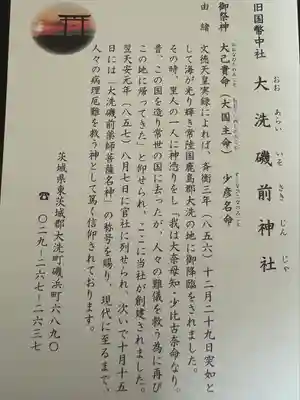 旧国幣中社
大洗磯前神社
おお あらい いそ さき じん じゃ
御祭神 大己貴命(大国主命) 少彦名命
由緒
文徳天皇実録によれば、斉衡三年(八五六)十二月二十九日突如と
して海が光り輝き常陸国鹿島郡大洗の地に御降臨をされました。
その時、里人の一人に神憑りをし『我は大奈母知・少比古奈命なり。
昔、この国を造り常世の国に去ったが、人々の難儀を救う為に再び
この地に帰ってきた』と仰せられ、ここに当社が創建されました。
翌天安元年(八五七)八月七日に官社に列せられ、次いで十月十五
日には「大洗磯前薬師菩薩名神」の称号を賜り、現代に至るまで、
人々の病理厄難を救う神として篤く信仰されております。
茨城県東茨城郡大洗町磯浜町六八九〇
☎ 〇二九-二六七-二六三七